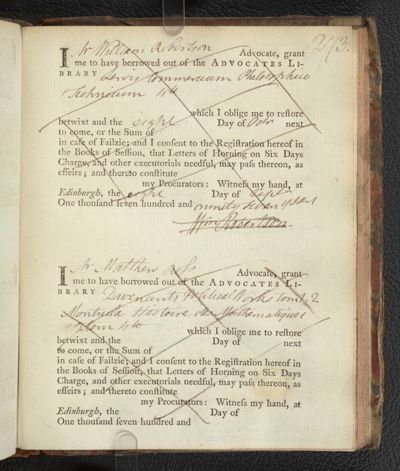 273.
I Mr William Robertson Advocate, grant
me to have borrowed out of the ADVOCATES LI-
BRARY Lewis Commercium Philosophico
Technicum 4to
which I oblige me to reſtore
betwixt and the eight Day of Octr next
to come, or the Sum of
in caſe of Failzie; and I conſent to the Regiſtration hereof in
the Books of Seſſion, that Letters of Horning on Six Days
Charge, and other executorials needful, may paſs thereon, as
effeirs; and thereto conſtitute
my Procurators: Witneſs my hand, at
Edinburgh, the eight Day of Septr
One thouſand ſeven hundred and ninety seven years
Wm Robertson.
I Mr Matthew Ross Advocate, grant
me to have borrowed out of the ADVOCATES LI-
BRARY Davenants Political Works tom. 2
Montucla Histoire des Mathematiques
2 tom 4to
which I oblige me to reſtore
betwixt and the Day of next
to come, or the Sum of
in caſe of Failzie; and I conſent to the Regiſtration hereof in
the Books of Seſſion, that Letters of Horning on Six Days
Charge, and other executorials needful, may paſs thereon, as
effeirs; and thereto conſtitute
my Procurators: Witneſs my hand, at
Edinburgh, the Day of
One thouſand ſeven hundred and